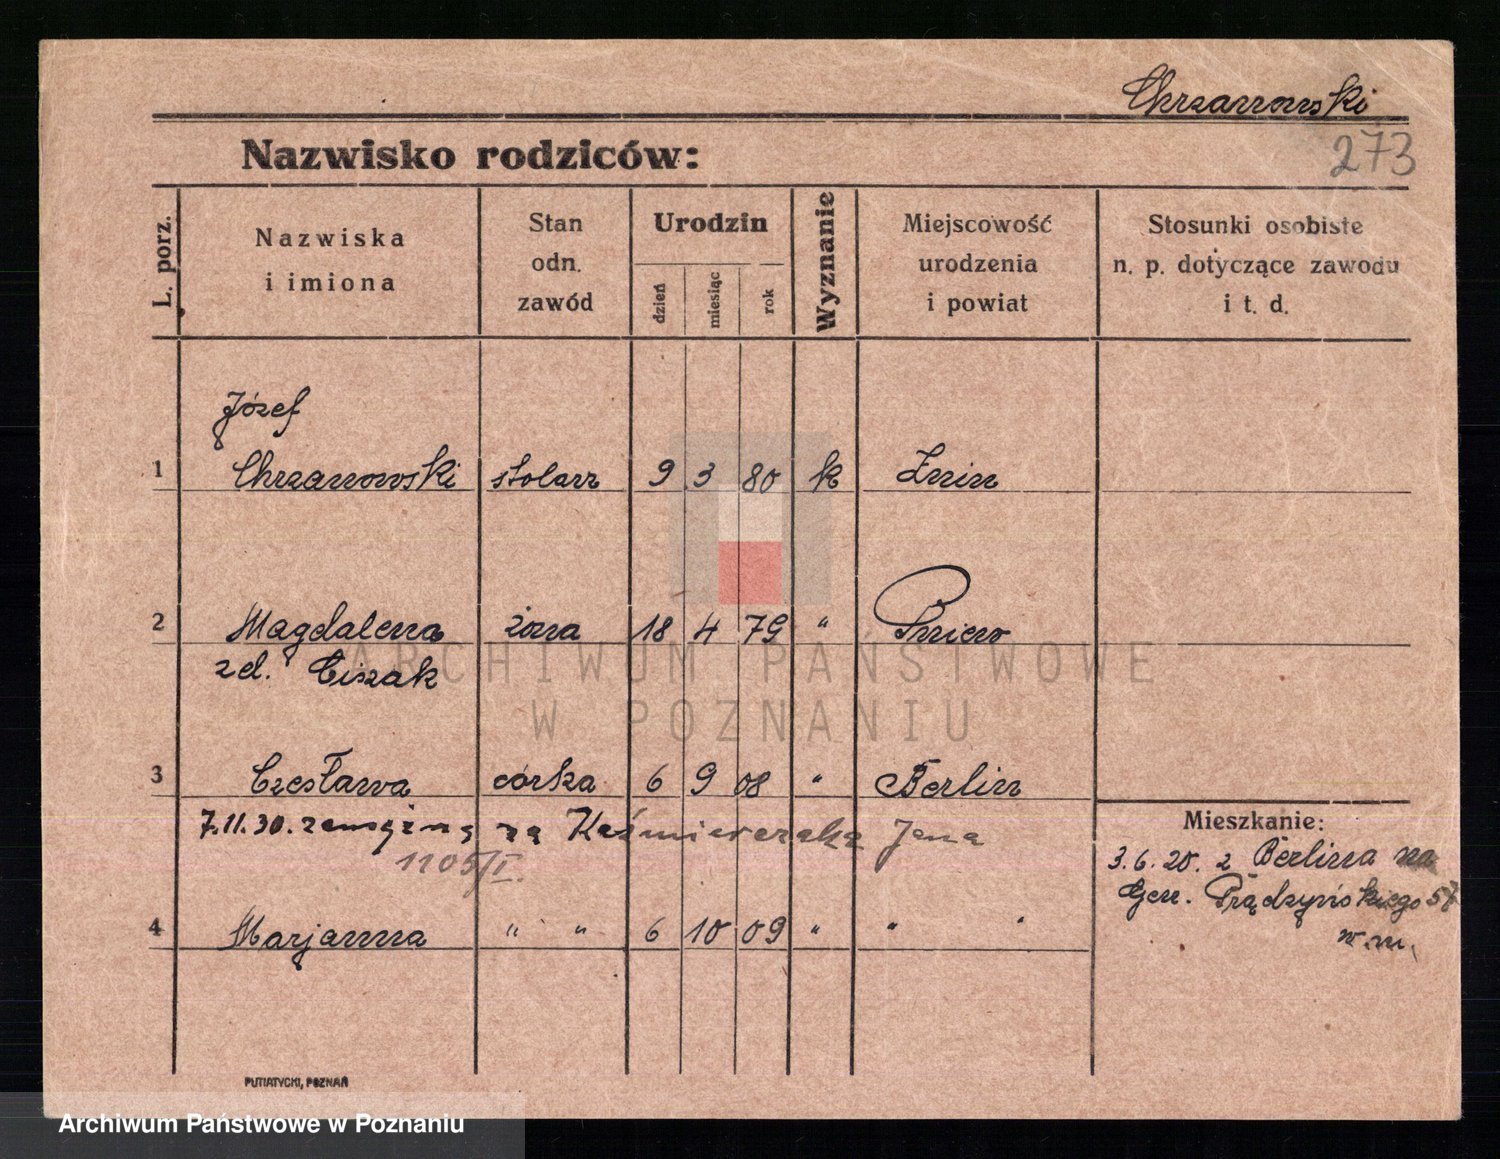 Chrzanowski
273
Nazwisko rodziców:
L. porz.
Nazwiska
i imiona
Stan
odn.
zawód
Urodzin
dzień
miesiąc
rok
Wyznanie
Miejscowość
urodzenia
i powiat
Stosunki osobiste
n. p. dotyczące zawodu
i t. d.
Józef
1 Chrzanowski stolarz 9 3 80 k Żnin
2 Magdalena żona 18 4 79 " Pniew
zd. Ciszak
ARCHIWUM PAŃSTWOWE
W POZNANIU
3 Czesława córka 6 9 08 " Berlin
7.11.30. zamężna za Kaźmierczaka Jana
1105/I.
Mieszkanie:
3.6.20. z Berlina na
Gen. Prądzyńskiego 57
w.m.
4 Marjanna " " 6 10 09 " " "
PUTIATYCKI, POZNAŃ
Archiwum Państwowe w Poznaniu